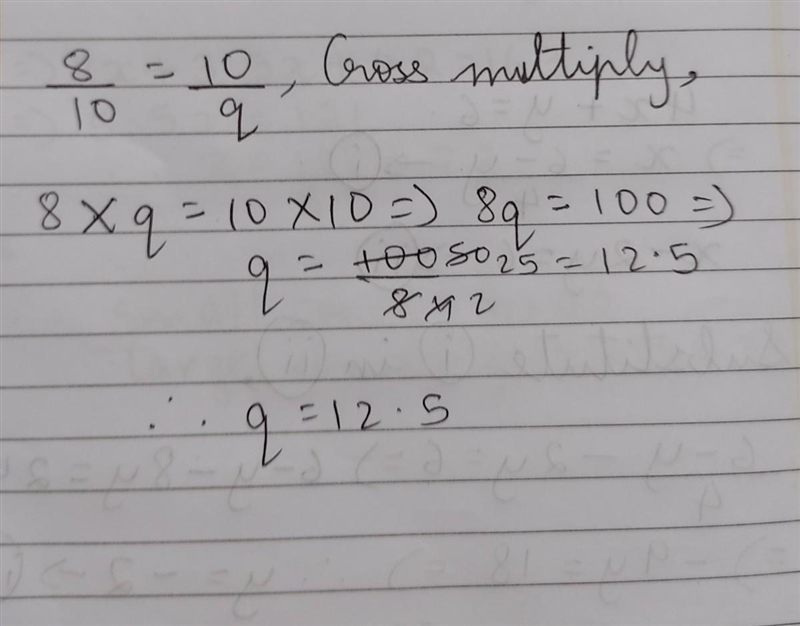 8/10 = 10/q, Cross multiply,
8 × q = 10 × 10 => 8q = 100 =>
q = 100 50 25 / 8 4 2 = 12.5
∴ q = 12.5